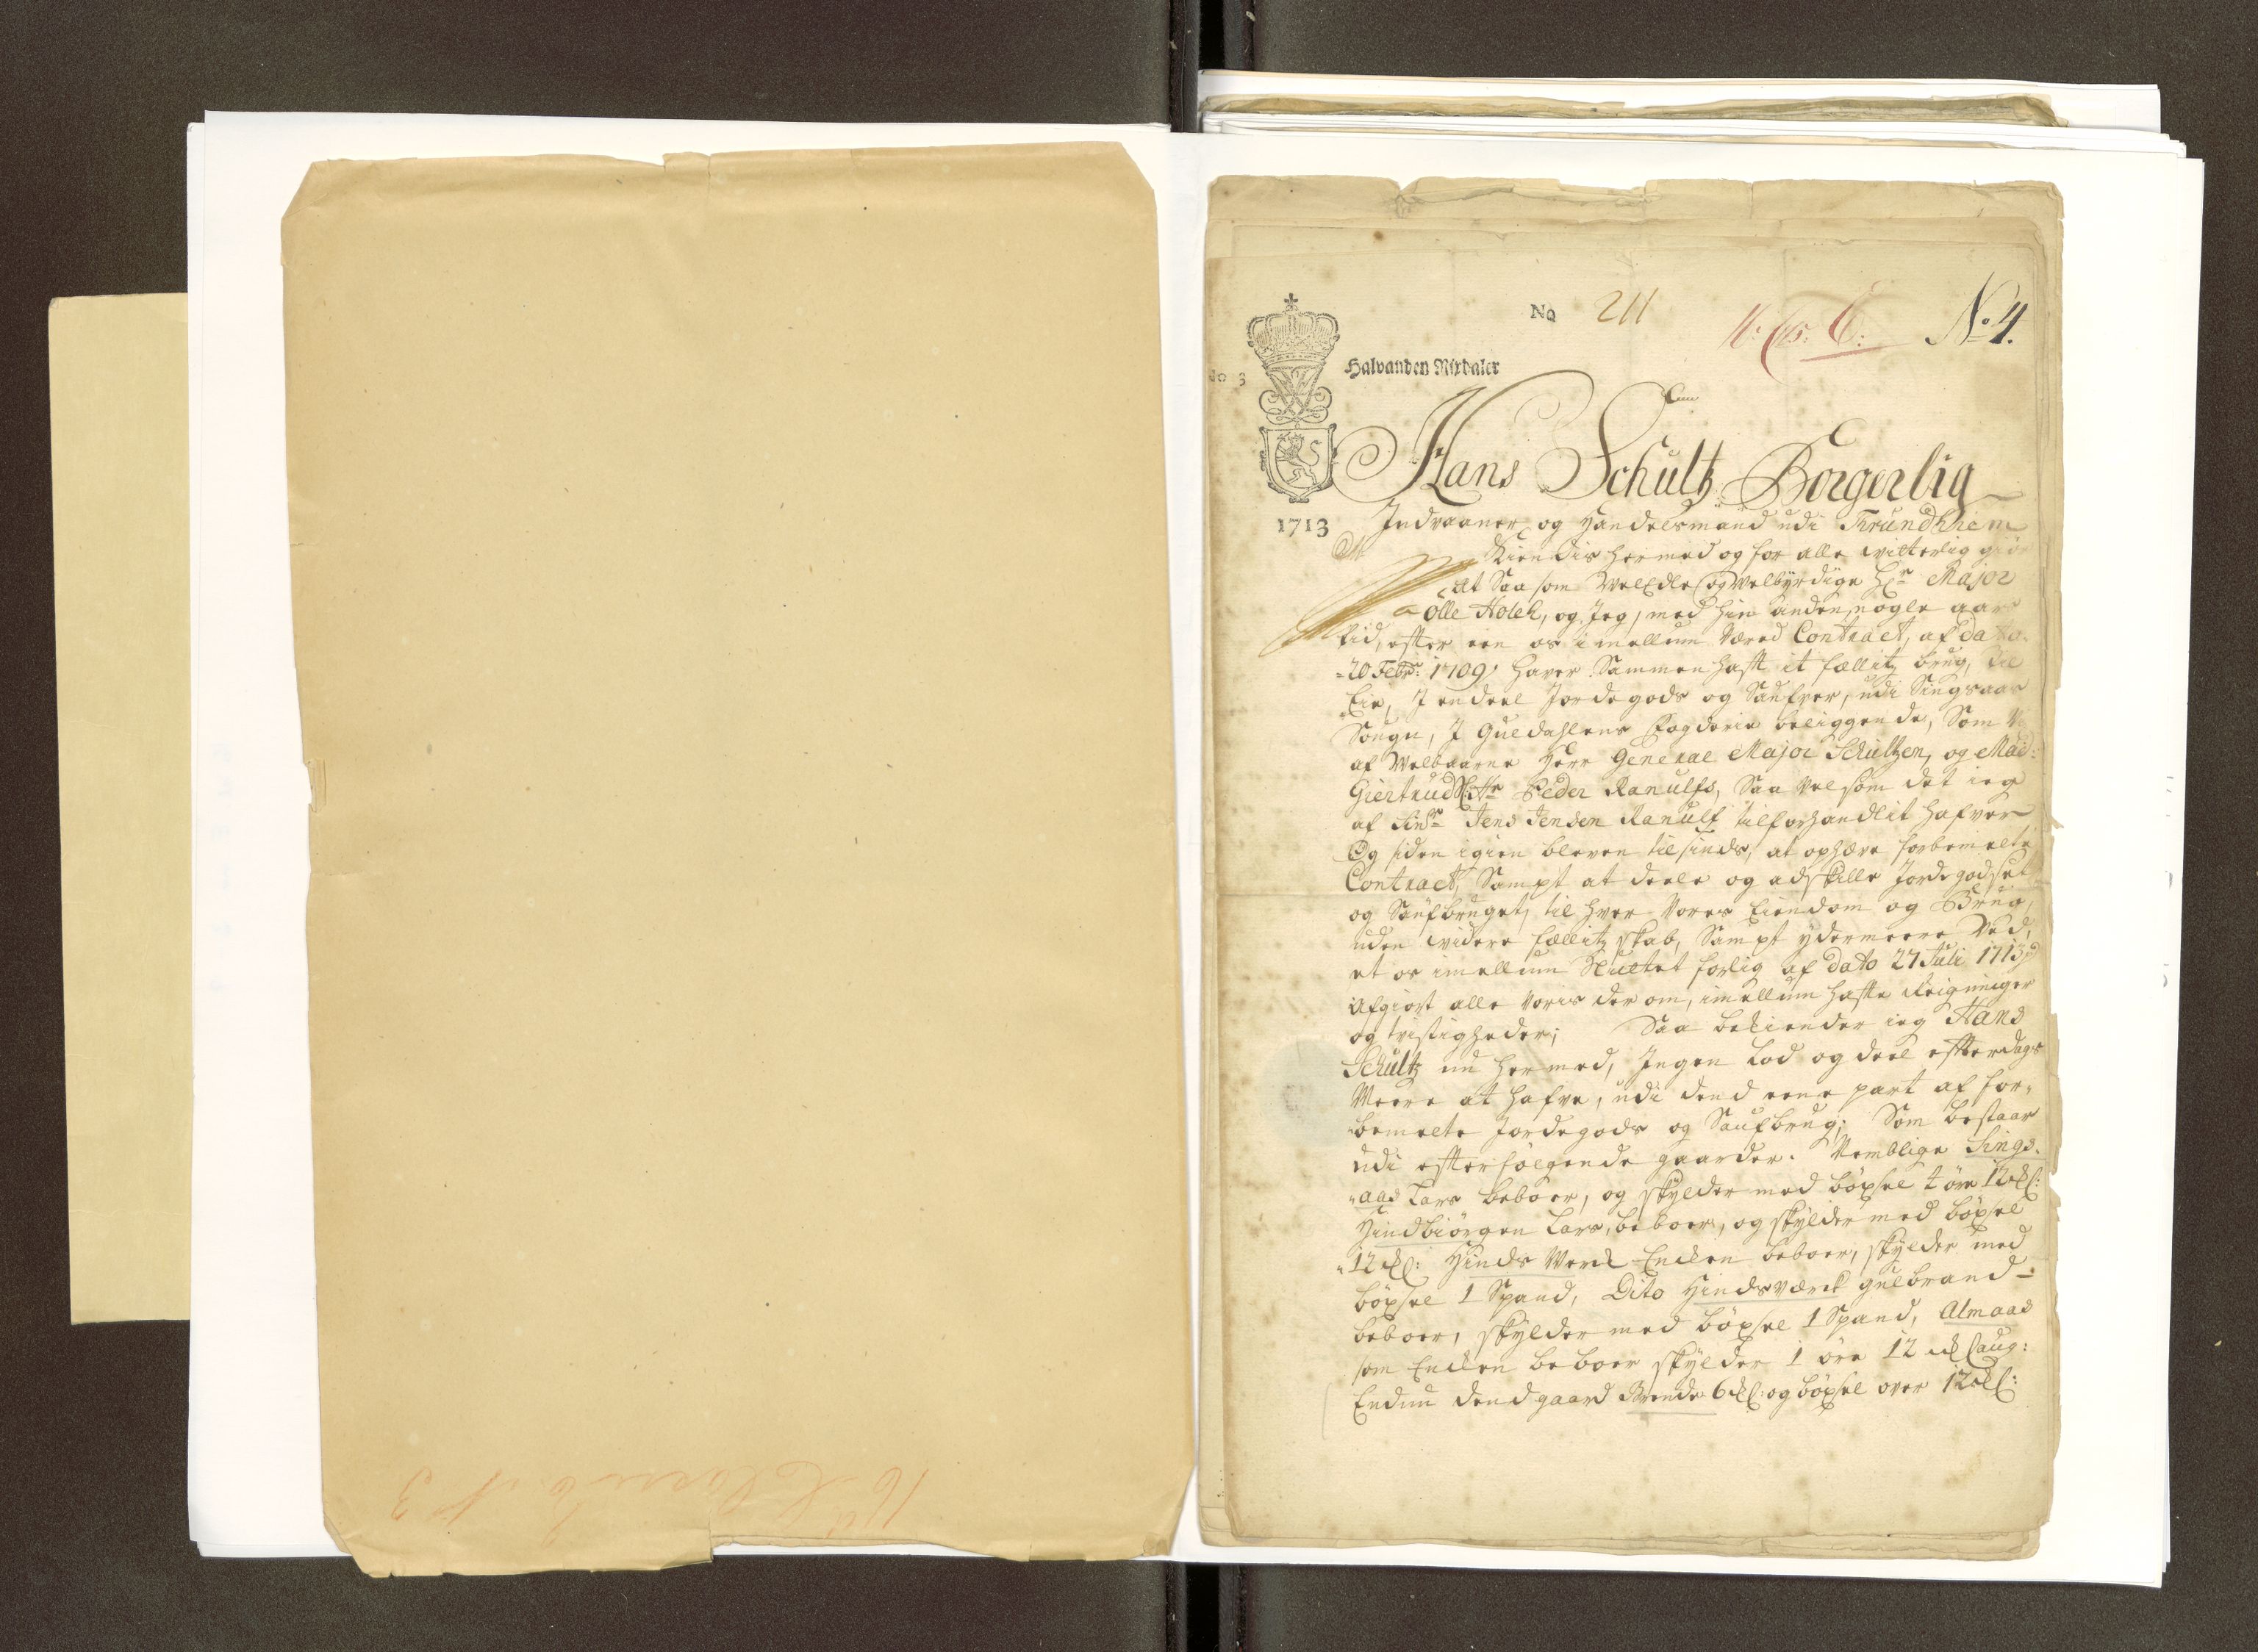 No 211
No 4.
Halvanden Rixdaler
Hans Schultz Borgerlig
1713
Indvaaner og Handelsmand udi Trundhiem
Kiendis hermed og for alle witterlig giør
At Saa som WelEdle og Welbyrdige Hr Major
Olle Holck, og Jeg, med hin anden nogle aars
tid, efter een os imellum Wæred Contract, af dato
20 Febr: 1709, hafver Sammen hafft it fællitz brug, til
Eie, I en deel Jordegods og Saufver, udi Singsaas
Sougn, I Guldahlens Fogderie beliggende, Som
af Welbaarne Herr General Major Schultzen, og Mad:
Giertrud Peder Ranulfs, Saa vel som det ieg
af Jens Jensen Ranulf tilforhandlit hafver
Og siden igien bleven tilsinds, at ophæve forbemelte
Contract, Sampt at deele og adskille Jordegodset
og Saufbruget, til hver Vores Eiendom og Brug,
uden widere fællitzskab, Sampt ydermeere Ved,
et os imellum Sluttet forlig af dato 27 Juli 1713
Afgiort alle Voris der om, imellum haffte Reigninger
og tvistigheder; Saa bekiender ieg Hans
Schultz nu hermed, Ingen Lod og deel effterdags
Meere at hafve, udi dend eene part af for-
bemelte Jordegods og Saufbrug; Som bestaar
udi effterfølgende gaarder. Nemblige Sings-
aas Lars beboer, og skylder med böxsel 1 øre 12
Hindbiörgen Lars, beboer, og skylder med böxsel
12 Hinds Werck Encken beboer, skylder med
böxsel 1 Spand, Dito Hindsværck gulbrand
beboer, skylder med böxsel 1 Spand, Almaas
som Encken beboer skylder 1 øre 12 Saug:
Endnu dend gaard Brende 6 og böxsel over 12